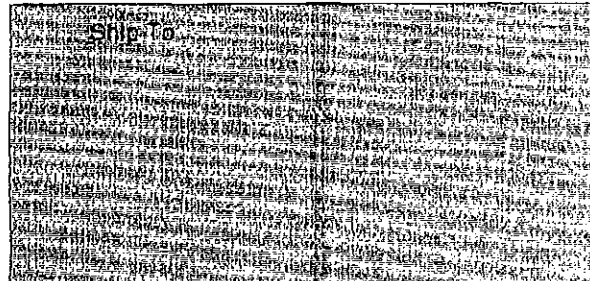 Ship To